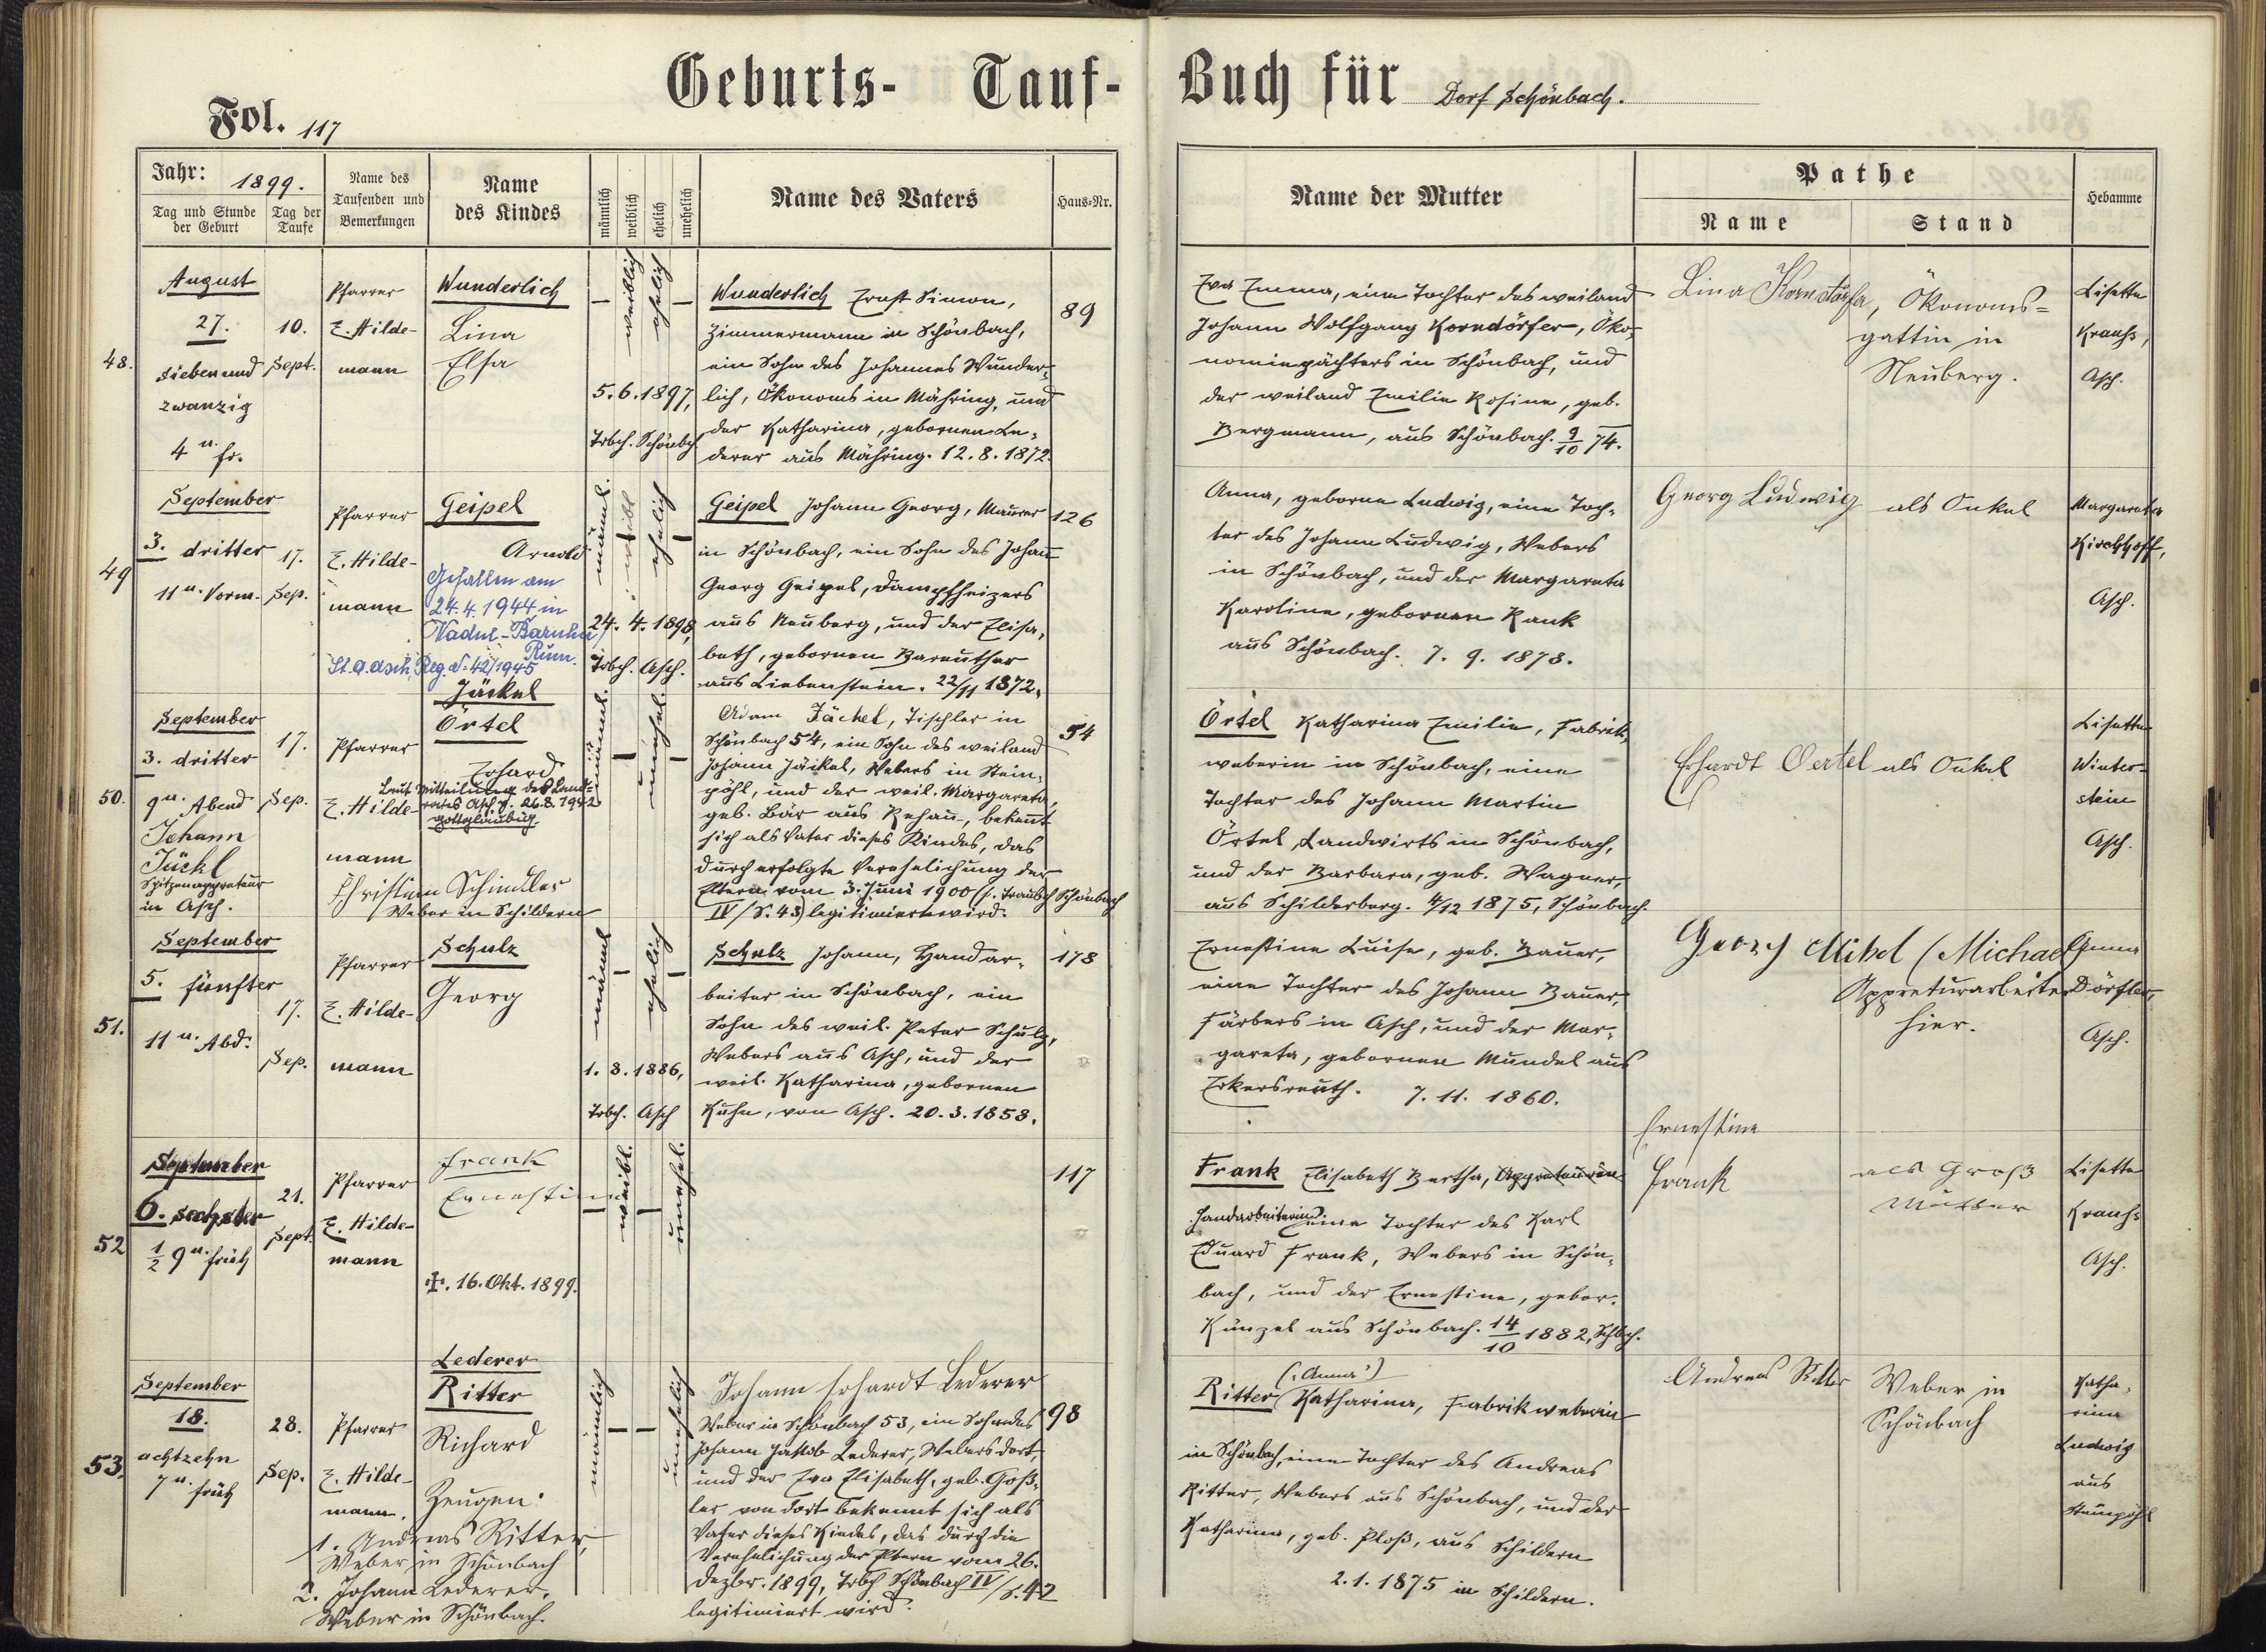 Geburts- Tauf-
Buch für Dorf Schönbach.
Fol. 117
Jahr: 1899.
Tag und Stunde der Geburt
Tag der Taufe
Name des Taufenden und Bemerkungen
Name des Kindes
männlich
weiblich
ehelich
unehelich
Name des Vaters
Haus-Nr.
Name der Mutter
Pathe
Name
Stand
Hebamme
48.
August
27.
sieben und
zwanzig
4 u. fr.
10.
Sept.
Pfarrer
E. Hilde-
mann
Wunderlich
Lina
Elsa
weiblich
ehelich
5. 6. 1897,
Trbch. Schönbch.
Wunderlich Ernst Simon,
Zimmermann in Schönbach,
ein Sohn des Johannes Wunder-
lich, Ökonoms in Mähring, und
der Katharina, gebornen Le-
derer aus Mähring. 12. 8. 1872.
89
Eva Emma, eine Tochter des weiland
Johann Wolfgang Korndörfer, Öko-
nomiepächters in Schönbach, und
der weiland Emilie Rosine, geb.
Bergmann, aus Schönbach. 9/10 74.
Lina Korndörfer, Ökonoms=
gattin in
Neuberg.
Lisette
Krauß,
Asch.
49
September
3. dritter
11 u. Vorm.
17.
Sep.
Pfarrer
E. Hilde-
mann
Geipel
Arnold
Gefallen am
24. 4. 1944 in
Vadul-
Rum.
St. a. Asch, Reg. N. 42/1945
männl.
ehelich
24. 4. 1898,
Trbch. Asch.
Geipel Johann Georg, Maurer
in Schönbach, ein Sohn des Johann
Georg Geipel, Dampfheizers
aus Neuberg, und der Elisa-
beth, gebornen Bareuther
aus Liebenstein. 22/11 1872.
126
Anna, geborne Ludwig, eine Toch-
ter des Johann Ludwig, Webers
in Schönbach, und der Margareta
Karoline, gebornen Rank
aus Schönbach. 7. 9. 1878.
Georg Ludwig als Onkel
Margareta
Kirchhoff,
Asch.
50.
September
3. dritter
9 u. Abend
17.
Sep.
Pfarrer
E. Hilde-
mann
Jäckel
Örtel
Erhard
Laut Mitteilung des Land-
rates Asch v. 26. 8. 1942
gottgläubig.
Johann
Jäckl
Spitzenappreteur
in Asch.
Christian Schindler
Weber in Schildern
männl.
unehel.
Adam Jäckel, Tischler in
Schönbach 54, ein Sohn des weiland
Johann Jäckel, Webers in Stein-
pöhl, und der weil. Margareta,
geb. Bär aus Rehau, bekennt
sich als Vater dieses Kindes, das
durch erfolgte Verehelichung der
Eltern vom 3. Juni 1900 (s. Traubch Schönbach
IV / S. 43) legitimiert wird.
54
Örtel Katharina Emilie, Fabriks-
weberin in Schönbach, eine
Tochter des Johann Martin
Örtel, Landwirts in Schönbach,
und der Barbara, geb. Wagner,
aus Schilderberg. 4/12 1875, Schönbach.
Erhardt Oertel als Onkel
Lisette
Winter-
stein
Asch.
51.
September
5. fünfter
11 u. Abd.
17.
Sep.
Pfarrer
E. Hilde-
mann
Schulz
Georg
männl
ehelich
1. 8. 1886,
Trbch. Asch
Schulz Johann, Handar-
beiter in Schönbach, ein
Sohn des weil. Peter Schulz,
Webers aus Asch, und der
weil. Katharina, gebornen
Kuhn, von Asch. 20. 3. 1858.
178
Ernestine Luise, geb. Bauer,
eine Tochter des Johann Bauer,
Färbers in Asch, und der Mar-
gareta, gebornen Mundel aus
Erkersreuth. 7. 11. 1860.
Georg Mihel (Michael
Appreturarbeiter
hier.
Anna
Dörfler,
Asch.
52
September
6. sechster
1/2 9 u. früh
21.
Sept.
Pfarrer
E. Hilde-
mann
Frank
Ernestine
✝. 16. Okt. 1899.
weibl.
unehel.
117
Frank Elisabeth Bertha, Appreteurin
Handarbeiterin, eine Tochter des Karl
Eduard Frank, Webers in Schön-
bach, und der Ernestine, gebor.
Künzel aus Schönbach. 14/10 1882, Schbch.
Ernestine
Frank
als Groß
Mutter
Lisette
Krauß
Asch.
53.
September
18.
achtzehn
7 u. früh
28.
Sep.
Pfarrer
E. Hilde-
mann.
Lederer
Ritter
Richard
Zeugen:
1. Andreas Ritter,
Weber in Schönbach
2. Johann Lederer,
Weber in Schönbach.
männlich
unehelich
Johann Erhardt Lederer
Weber in Schönbach 53, ein Sohn des
Johann Jakob Lederer, Webers dort,
und der Eva Elisabeth, geb. Goß-
ler von dort bekennt sich als
Vater dieses Kindes, das durch die
Verehelichung der Eltern vom 26.
Dezbr. 1899, Trbch Schönbach IV / S. 42
legitimiert wird.
98
(„Anna")
Ritter Katharina, Fabrikweberin
in Schönbach, eine Tochter des Andreas
Ritter, Webers aus Schönbach, und der
Katharina, geb. Ploß, aus Schildern
2. 1. 1875 in Schildern.
Andreas Ritter
Weber in
Schönbach
Katha-
rina
Ludwig
aus
Steinpöhl